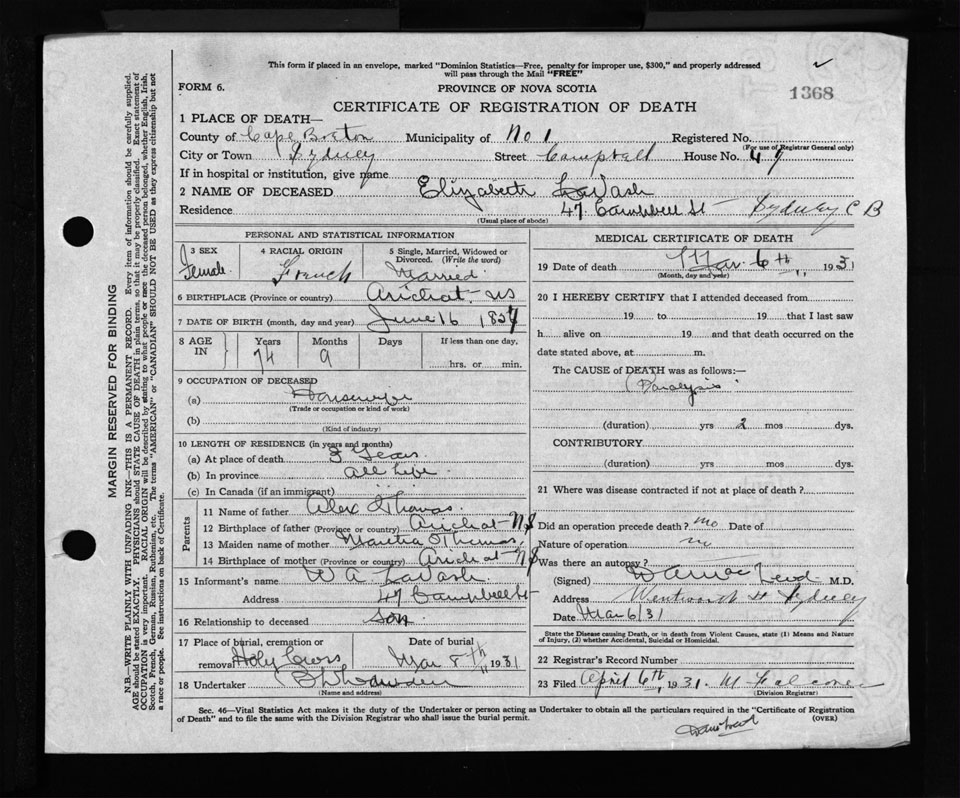 This form if placed in an envelope, marked "Dominion Statistics—Free, penalty for improper use, $300," and properly addressed
will pass through the Mail "FREE"
FORM 6.
PROVINCE OF NOVA SCOTIA
1368
CERTIFICATE OF REGISTRATION OF DEATH
1 PLACE OF DEATH—
County of Cape Breton Municipality of No 1 Registered No.
(For use of Registrar General only)
City or Town Sydney Street Campbell House No. 47
If in hospital or institution, give name
2 NAME OF DECEASED Elizabeth LaVash
Residence 47 Campbell St Sydney C B
(Usual place of abode)
PERSONAL AND STATISTICAL INFORMATION
3 SEX Female
4 RACIAL ORIGIN French
5 Single, Married, Widowed or Divorced. (Write the word) Married
6 BIRTHPLACE (Province or country) Arichat. NS
7 DATE OF BIRTH (month, day and year) June 16 1857
8 AGE IN Years Months Days If less than one day.
74 9 hrs. or min.
9 OCCUPATION OF DECEASED
(a) Housewife
(Trade or occupation or kind of work)
(b)
(Kind of industry)
10 LENGTH OF RESIDENCE (in years and months)
(a) At place of death Years
(b) In province all Life
(c) In Canada (if an immigrant)
Parents
11 Name of father Alex Thomas
12 Birthplace of father (Province or country) Arichat NS
13 Maiden name of mother Thomas
14 Birthplace of mother (Province or country) Arichat NS
15 Informant's name W A LaVash
Address 47 Campbell St
16 Relationship to deceased son
17 Place of burial, cremation or removal Holy Cross
Date of burial Mar 8th 1931
18 Undertaker
(Name and address)
MEDICAL CERTIFICATE OF DEATH
19 Date of death Mar 6th 1931
(Month, day and year)
20 I HEREBY CERTIFY that I attended deceased from
19 to 19 that I last saw
h alive on 19 and that death occurred on the
date stated above, at m.
The CAUSE of DEATH was as follows:—
Paralysis
(duration) yrs 2 mos dys.
CONTRIBUTORY
(duration) yrs mos dys.
21 Where was disease contracted if not at place of death?
Did an operation precede death? no Date of
Nature of operation
Was there an autopsy? no
(Signed) M.D.
Address Wentworth St Sydney
Date Mar 6/31
State the Disease causing Death, or in death from Violent Causes, state (1) Means and Nature
of Injury, (2) whether Accidental, Suicidal or Homicidal.
22 Registrar's Record Number
23 Filed April 6th, 1931. M Falconer
(Division Registrar)
Sec. 46—Vital Statistics Act makes it the duty of the Undertaker or person acting as Undertaker to obtain all the particulars required in the "Certificate of Registration
of Death" and to file the same with the Division Registrar who shall issue the burial permit.
(OVER)
MARGIN RESERVED FOR BINDING
N.B.—WRITE PLAINLY WITH UNFADING INK—THIS IS A PERMANENT RECORD. Every item of information should be carefully supplied.
AGE should be stated EXACTLY. PHYSICIANS should STATE CAUSE OF DEATH in plain terms, so that it may be properly classified. Exact statement of
OCCUPATION is very important. RACIAL ORIGIN will be described by stating to what people or race the deceased person belonged, whether English, Irish,
Scotch, French, German, Russian, Ruthenian, etc. The terms "AMERICAN" or "CANADIAN" SHOULD NOT BE USED as they express citizenship but not
a race or people. See instructions on back of Certificate.